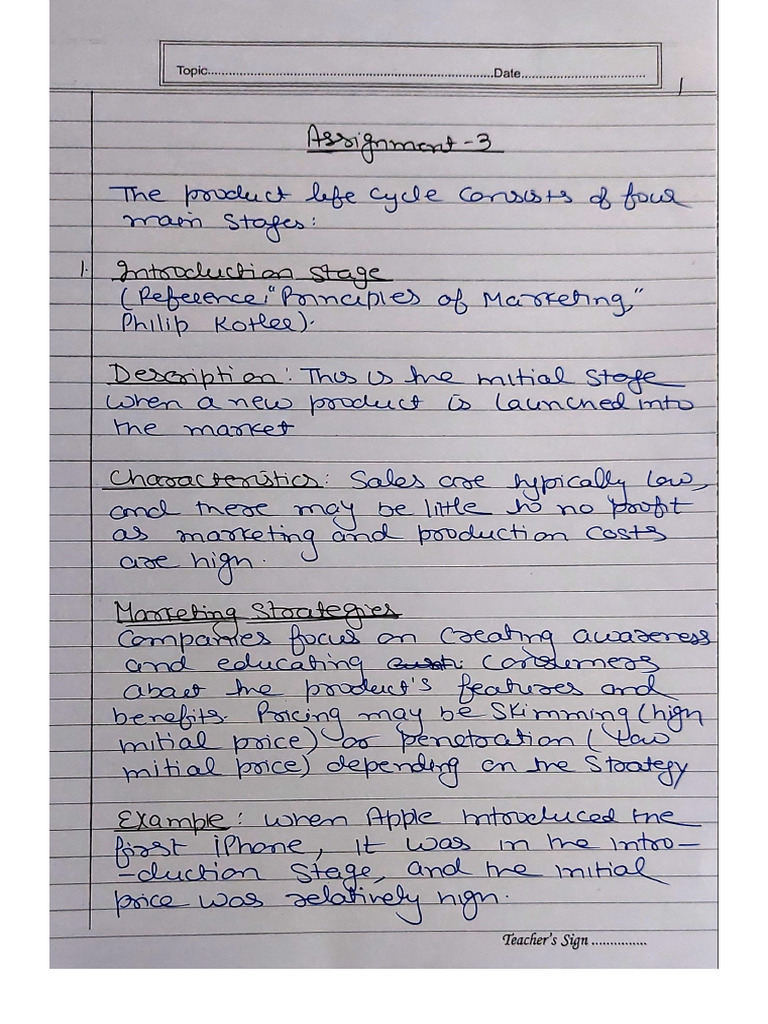 Topic....................Date....................
1
Assignment-3
The product life cycle consists of four
main stages:
1. Introduction stage
(Reference: "Principles of Marketing,"
Philip Kotler).
Description: This is the initial stage
when a new product is launched into
the market
Characteristics: Sales are typically low,
and there may be little to no profit
as marketing and production costs
are high.
Marketing Strategies
Companies focus on creating awareness
and educating consumers
about the product's features and
benefits. Pricing may be skimming (high
initial price) or penetration (low
initial price) depending on the strategy
Example: When Apple introduced the
first iPhone, it was in the intro-
-duction stage, and the initial
price was relatively high.
Teacher's Sign ...............